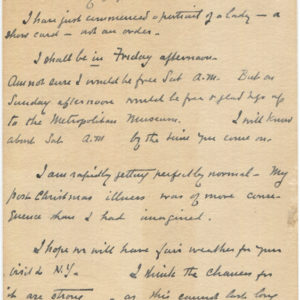 I have just commenced a portrait of a lady — a
show card — not an order.
I shall be in Friday afternoon.
Am not sure I would be free Sat A.M. But on
Sunday afternoon would be free & glad to go up
to the Metropolitan Museum. I will know
about Sat. A.M by the time you come on.
I am rapidly getting perfectly normal — My
post Christmas illness was of more conse-
quence than I had imagined.
I hope we will have fair weather for your
visit to N.Y. — I think the chances for
it are strong — as this cannot last long